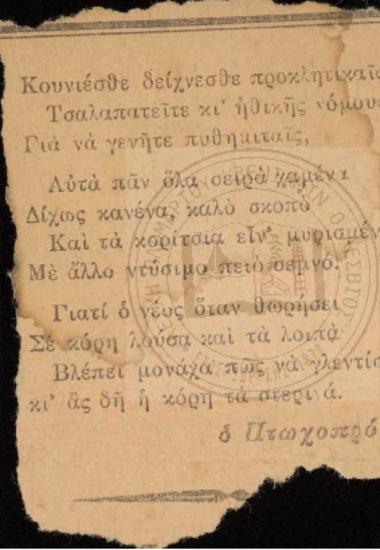 Κουνιέσθε δείχνεσθε προκλητικαῖς
Τσαλαπατεῖτε κι' ἠθικῆς νόμους
Γιὰ νὰ γενῆτε πυθημιταῖς,
Αὐτὰ πᾶν ὅλα σειρὰ χαμένα
Δίχως κανένα, καλὸ σκοπὸ
Καὶ τὰ κορίτσια εἶν' μυρισμέν
Μὲ ἄλλο ντύσιμο πειὸ σεμνό.
Γιατί ὁ νέος ὅταν θωρήσει
Σὲ κόρη λοῦσα καὶ τὰ λοιπὰ
Βλέπει μονάχα πῶς νὰ γλεντίσ
κι' ἂς δῆ ἡ κόρη τὰ στερινά.
ὁ Πτωχοπρό